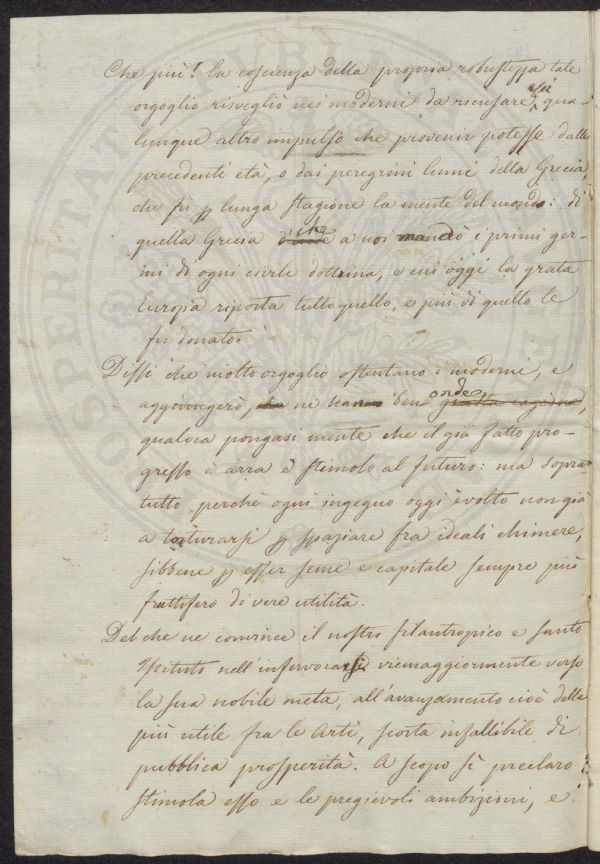 Che più! la coscienza della propria robustezza tale
orgoglio risvegliò nei moderni da ricusare essi qua-
lunque altro impulso che provenir potesse dalle
precedenti età, o dai peregrini lumi della Grecia,
che fu p lunga stagione la mente del mondo: di
quella Grecia che a noi mandò i primi ger-
mi di ogni civile dottrina, e cui oggi la grata
Europa riporta tutto quello, e più di quello le
fu donato.
Dissi che molto orgoglio ostentano i moderni, e
aggiungerò, ne hanno ben onde giusta cagione,
qualora pongasi mente che il già fatto pro-
gresso è arra e stimolo al futuro: ma sopra
tutto perchè ogni ingegno oggi è volto non già
a torturarsi p spaziare fra ideali chimere,
sibbene p esser seme e capitale sempre più
fruttifero di vere utilità.
Del che ne convince il nostro filantropico e santo
Istituto nell'infervorarsi viemaggiormente verso
la sua nobile meta, all'avanzamento cioè della
più utile fra le Arti, scorta infallibile di
pubblica prosperità. A scopo sì preclaro
stimola esso e le pregievoli ambizioni, e